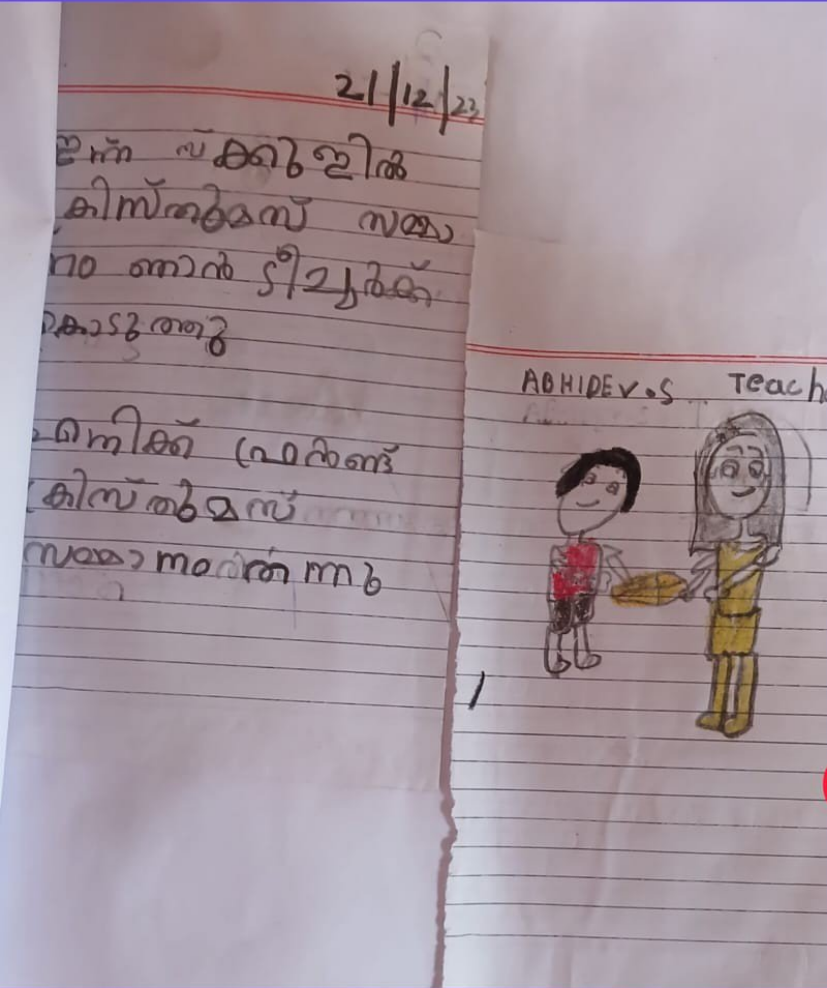 21/12/23
ഇന്ന് സ്ക്കുളിൽ
ക്രിസ്തുമസ് സമ്മാ
നം ഞാൻ ടീച്ചർക്ക്
കൊടുത്തു
എനിക്ക് ഫ്രണ്ട്
ക്രിസ്തുമസ്
സമ്മാനം തന്നു
ABHIDEV.S Teach